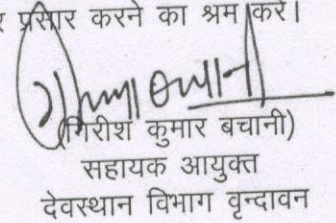 र प्रसार करने का श्रम करें।
(गिरीश कुमार बचानी)
सहायक आयुक्त
देवस्थान विभाग वृन्दावन